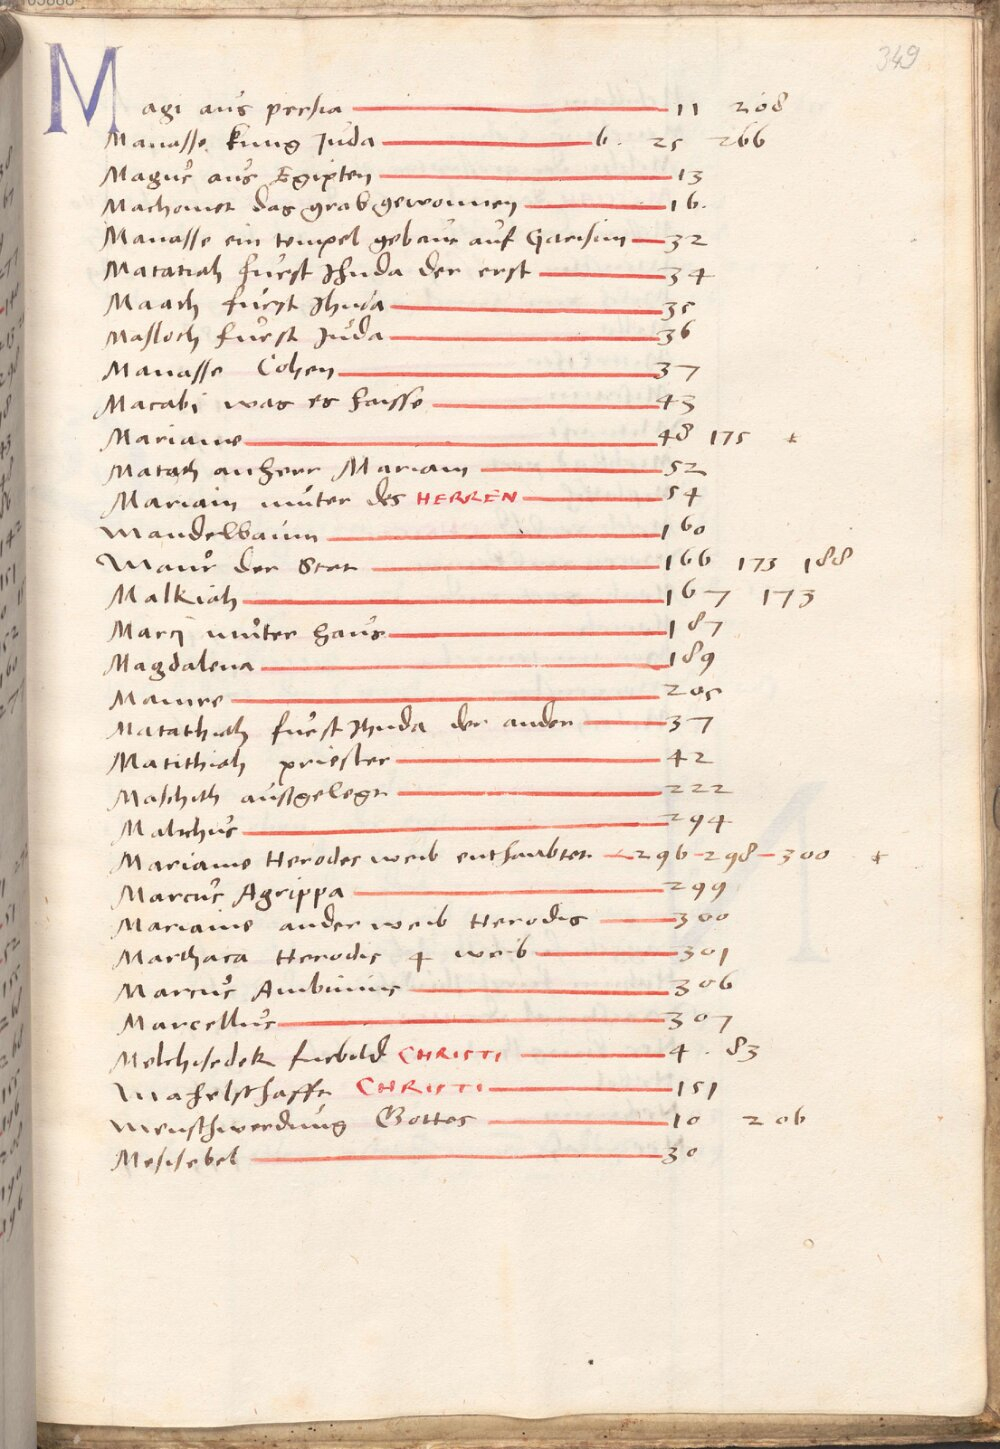 349
Magi aus persia 11 208
Manasse kung Juda 6. 25 266
Magus aus Egipten 13
Machomet das grab gewonnen 16.
Manasse ein tempel gebaut auf Garisim 32
Matatiah furst Jhuda der erst 34
Maath furst Jhuda 35
Masloth furst Juda 36
Manasse Cohen 37
Macabi was es haisse 43
Mariame 48 175 +
Matath anherr Mariam 52
Mariam muter des HERREN 54
Mandelbaum 160
Maur der Stat 166 173 188
Malkiah 167 173
Marci muter haus 187
Magdalena 189
Mamre 205
Matathiah furst Jhuda der ander 37
Matithiah priester 42
Mashith ausgelegt 222
Malchus 294
Mariame Herodes weib enthaubtet 296-298-300 +
Marcus Agrippa 299
Mariame ander weib Herodis 300
Marthaca Herodis 4 weib 301
Marcus Ambinius 306
Marcellus 307
Melchisedek furbild CHRISTI 4. 83
Mahelschafft CHRISTI 151
Menschwerdung Gottes 10 206
Mesisebel 30